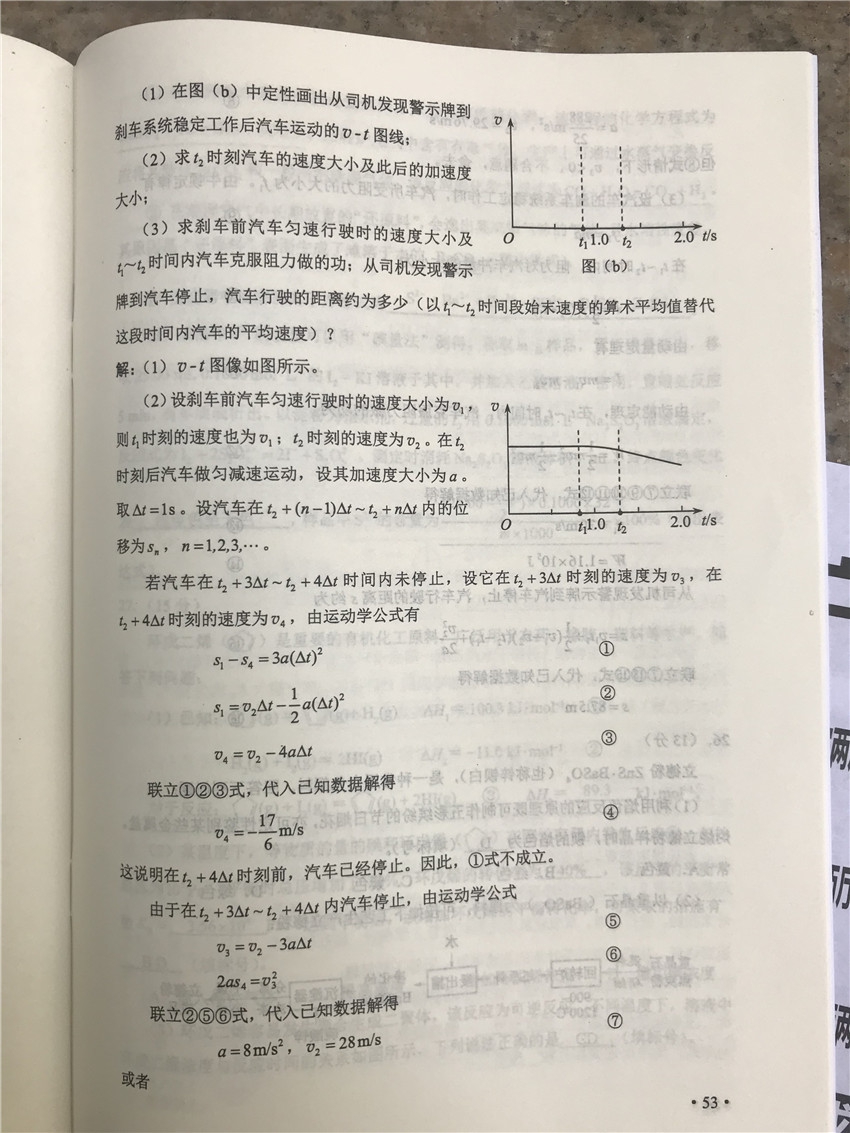 （1）在图（b）中定性画出从司机发现警示牌到
刹车系统稳定工作后汽车运动的v-t图线；
（2）求t₂时刻汽车的速度大小及此后的加速度
大小；
（3）求刹车前汽车匀速行驶时的速度大小及
t₁~t₂时间内汽车克服阻力做的功；从司机发现警示
v
O
t₁ 1.0 t₂ 2.0 t/s
图（b）
牌到汽车停止，汽车行驶的距离约为多少（以t₁~t₂时间段始末速度的算术平均值替代
这段时间内汽车的平均速度）？
解：（1）v-t图像如图所示。
（2）设刹车前汽车匀速行驶时的速度大小为v₁，
则t₁时刻的速度也为v₁；t₂时刻的速度为v₂。在t₂
时刻后汽车做匀减速运动，设其加速度大小为a。
取Δt=1s。设汽车在t₂+(n-1)Δt~t₂+nΔt内的位
移为sₙ，n=1,2,3,⋯。
v
O
t₁ 1.0 t₂ 2.0 t/s
若汽车在t₂+3Δt~t₂+4Δt时间内未停止，设它在t₂+3Δt时刻的速度为v₃，在
t₂+4Δt时刻的速度为v₄，由运动学公式有
s₁-s₄=3a(Δt)² ①
s₁=v₂Δt-1/2a(Δt)² ②
v₄=v₂-4aΔt ③
联立①②③式，代入已知数据解得
v₄=-17/6m/s ④
这说明在t₂+4Δt时刻前，汽车已经停止。因此，①式不成立。
由于在t₂+3Δt~t₂+4Δt内汽车停止，由运动学公式
v₃=v₂-3aΔt ⑤
2as₄=v₃² ⑥
联立②⑤⑥式，代入已知数据解得
a=8m/s²，v₂=28m/s ⑦
或者
·53·